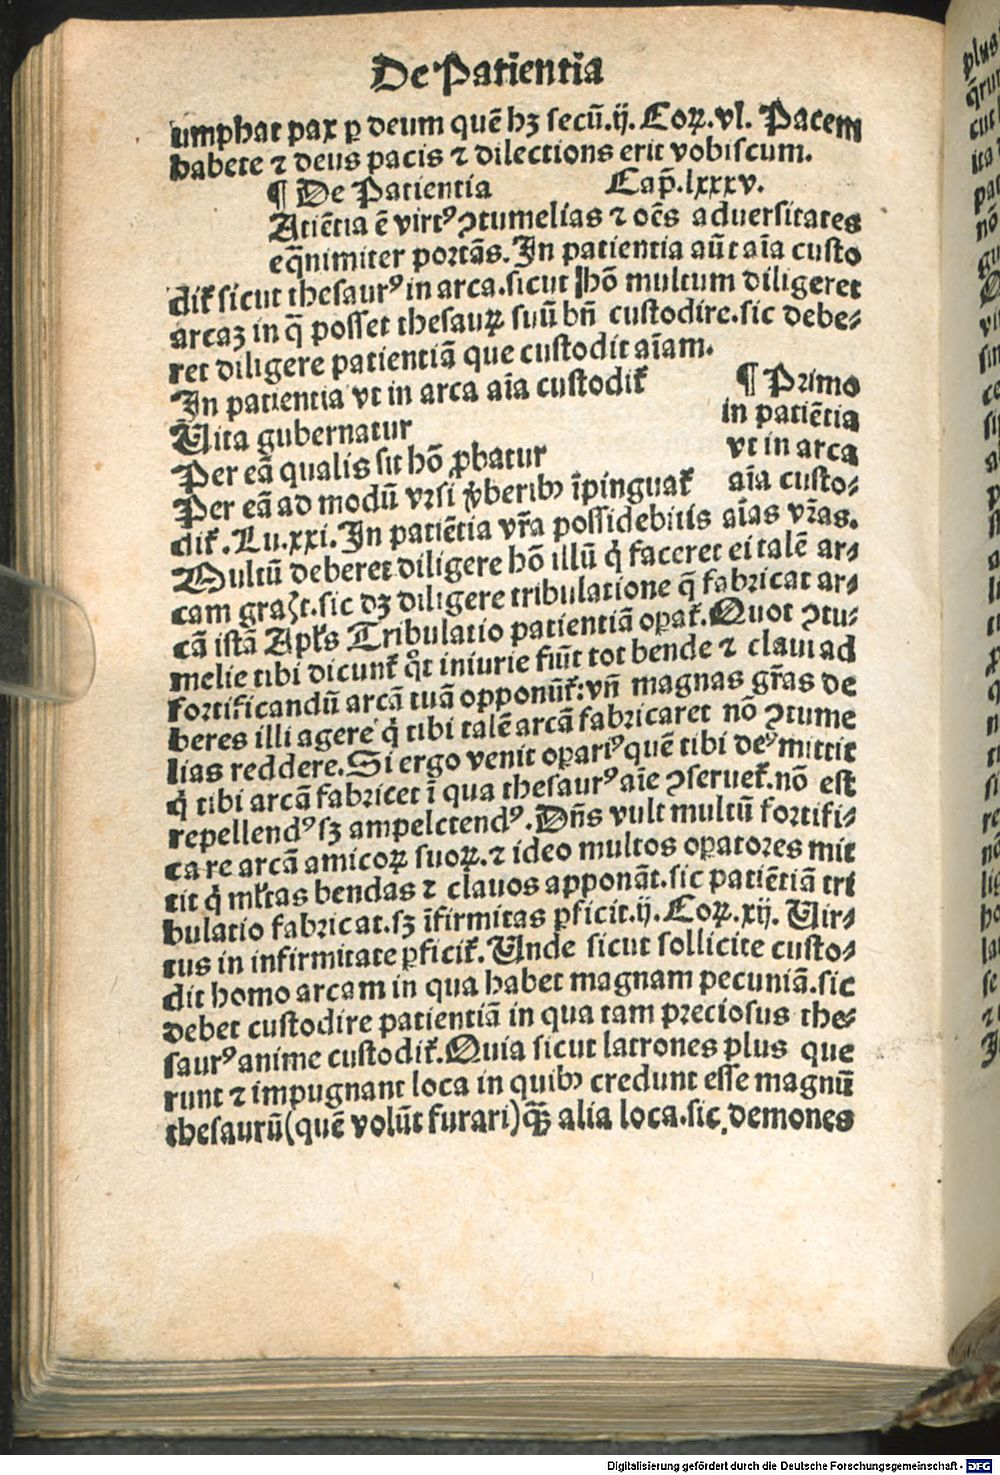 De Patiẽtia
umphat pax ꝑ deum quẽ hꝫ secũ.ij. Coꝝ.vl. Pacem
habete ⁊ deus pacis ⁊ dilections erit vobiscum.
¶ De Patientia Cap̃.lxxxv.
Atiẽtia ẽ virtꝰ ↄtumelias ⁊ oẽs aduersitates
eq̃nimiter portãs. In patientia aũt aĩa custo
dit᷑ sicut thesaurꝰ in arca. sicut ⁊ hõ multum diligeret
arcaꝫ in q̃ posset thesauꝝ suũ bñ custodire. sic debe⸗
ret diligere patientiã que custodit aĩam.
In patientia vt in arca aĩa custodit᷑ ¶ Primo
Uita gubernatur in patiẽtia
Per eã qualis sit hõ ꝓbatur vt in arca
Per eã ad modũ vrsi v̾beribꝰ ĩpinguat᷑ aĩa custo⸗
dit᷑. Lu.xxi. In patiẽtia vr̃a possidebitis aĩas vr̃as.
Multũ deberet diligere hõ illũ q̇ faceret ei talẽ ar⸗
cam gratꝭ. sic dꝫ diligere tribulatione q̃ fabricat ar⸗
cã istã Apl̃s Tribulatio patientiã oꝑat᷑. Quot ↄtu⸗
melie tibi dicunt᷑ qͦt iniurie fiũt tot bende ⁊ claui ad
fortificandũ arcã tuã opponũt᷑: vñ magnas gr̃as de
beres illi agere q̇ tibi talẽ arcã fabricaret nõ ↄtume
lias reddere. Si ergo venit oꝑariꝰ quẽ tibi deꝰ mittit
q̇ tibi arcã fabricet ĩ qua thesaurꝰ aĩe ↄseruet᷑. nõ est
repellendꝰ sꝫ amplectendꝰ. Dñs vult multũ fortifi⸗
care arcã amicoꝝ suoꝝ. ⁊ ideo multos oꝑatores mit
tit q̇ ml̃tas bendas ⁊ clauos apponãt. sic patiẽtiã tri
bulatio fabricat. sꝫ ĩfirmitas ꝑficit.ij. Coꝝ.xij. Uir⸗
tus in infirmitate ꝑficit᷑. Unde sicut sollicite custo⸗
dit homo arcam in qua habet magnam pecuniã. sic
debet custodire patientiã in qua tam preciosus the⸗
saurꝰ anime custodit᷑. Quia sicut latrones plus que
runt ⁊ impugnant loca in quibꝰ credunt esse magnũ
thesaurũ (quẽ volũt furari) q̃ꝫ alia loca. sic demones
Digitalisierung gefördert durch die Deutsche Forschungsgemeinschaft - DFG